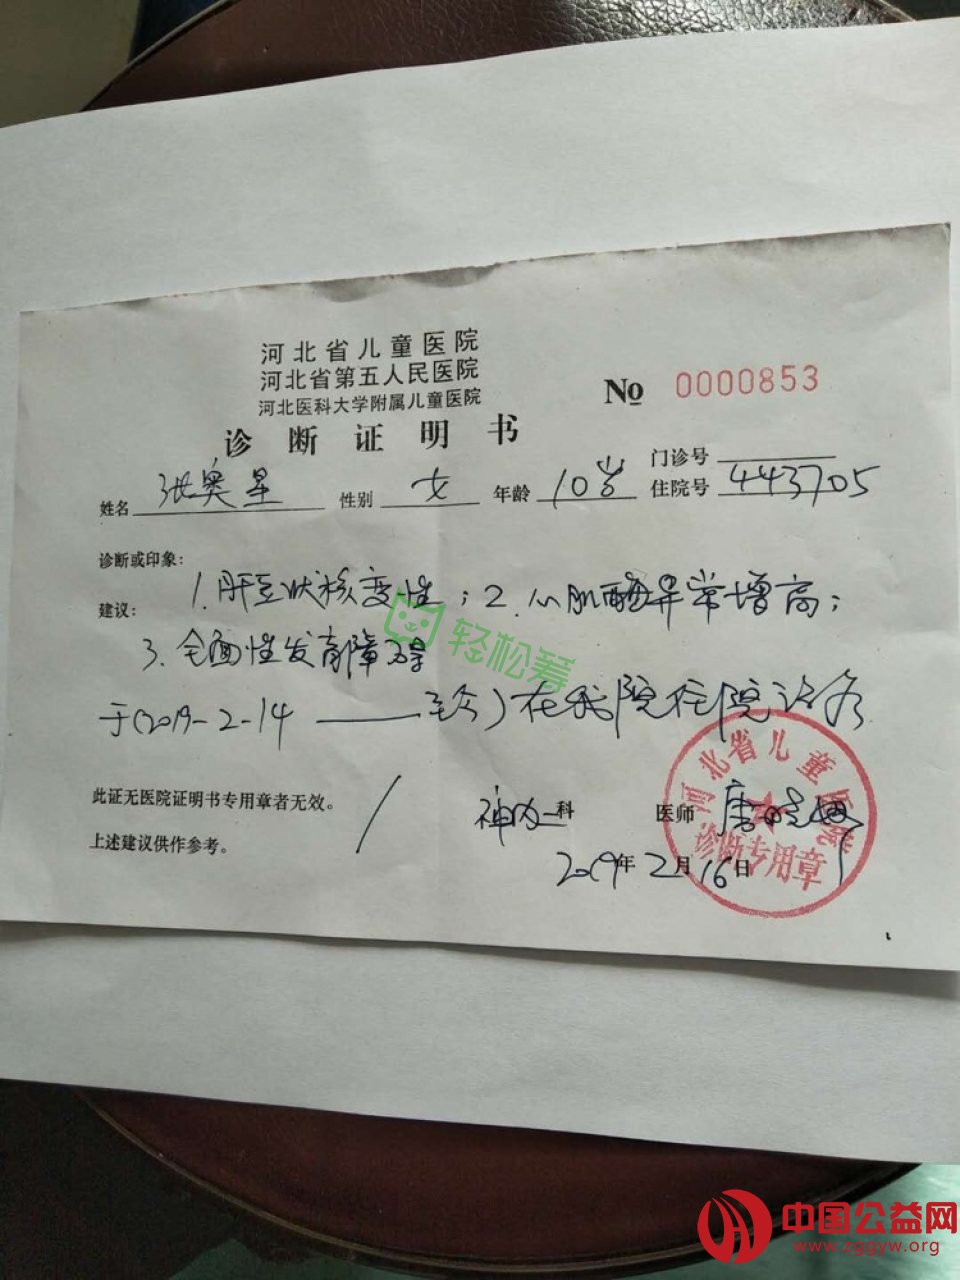 河北省儿童医院
河北省第五人民医院
河北医科大学附属儿童医院
No 0000853
诊断证明书
门诊号
姓名 张奥星 性别 女 年龄 10岁 住院号 443705
诊断或印象:
建议: 1.肝豆状核变性;2.心肌酶异常增高;
3.全面性发育障碍
轻松筹
于(2019-2-14——至今)在我院住院治疗
此证无医院证明书专用章者无效。
神内一科 医师 唐
上述建议供作参考。
2019年2月16日
河北省儿童医院
诊断专用章
中国公益网
www.zggyw.org